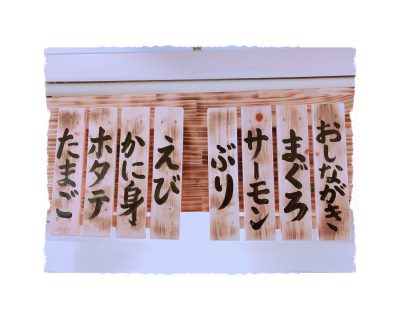 おしながき
まぐろ
サーモン
ぶり
えび
かに身
ホタテ
たまご